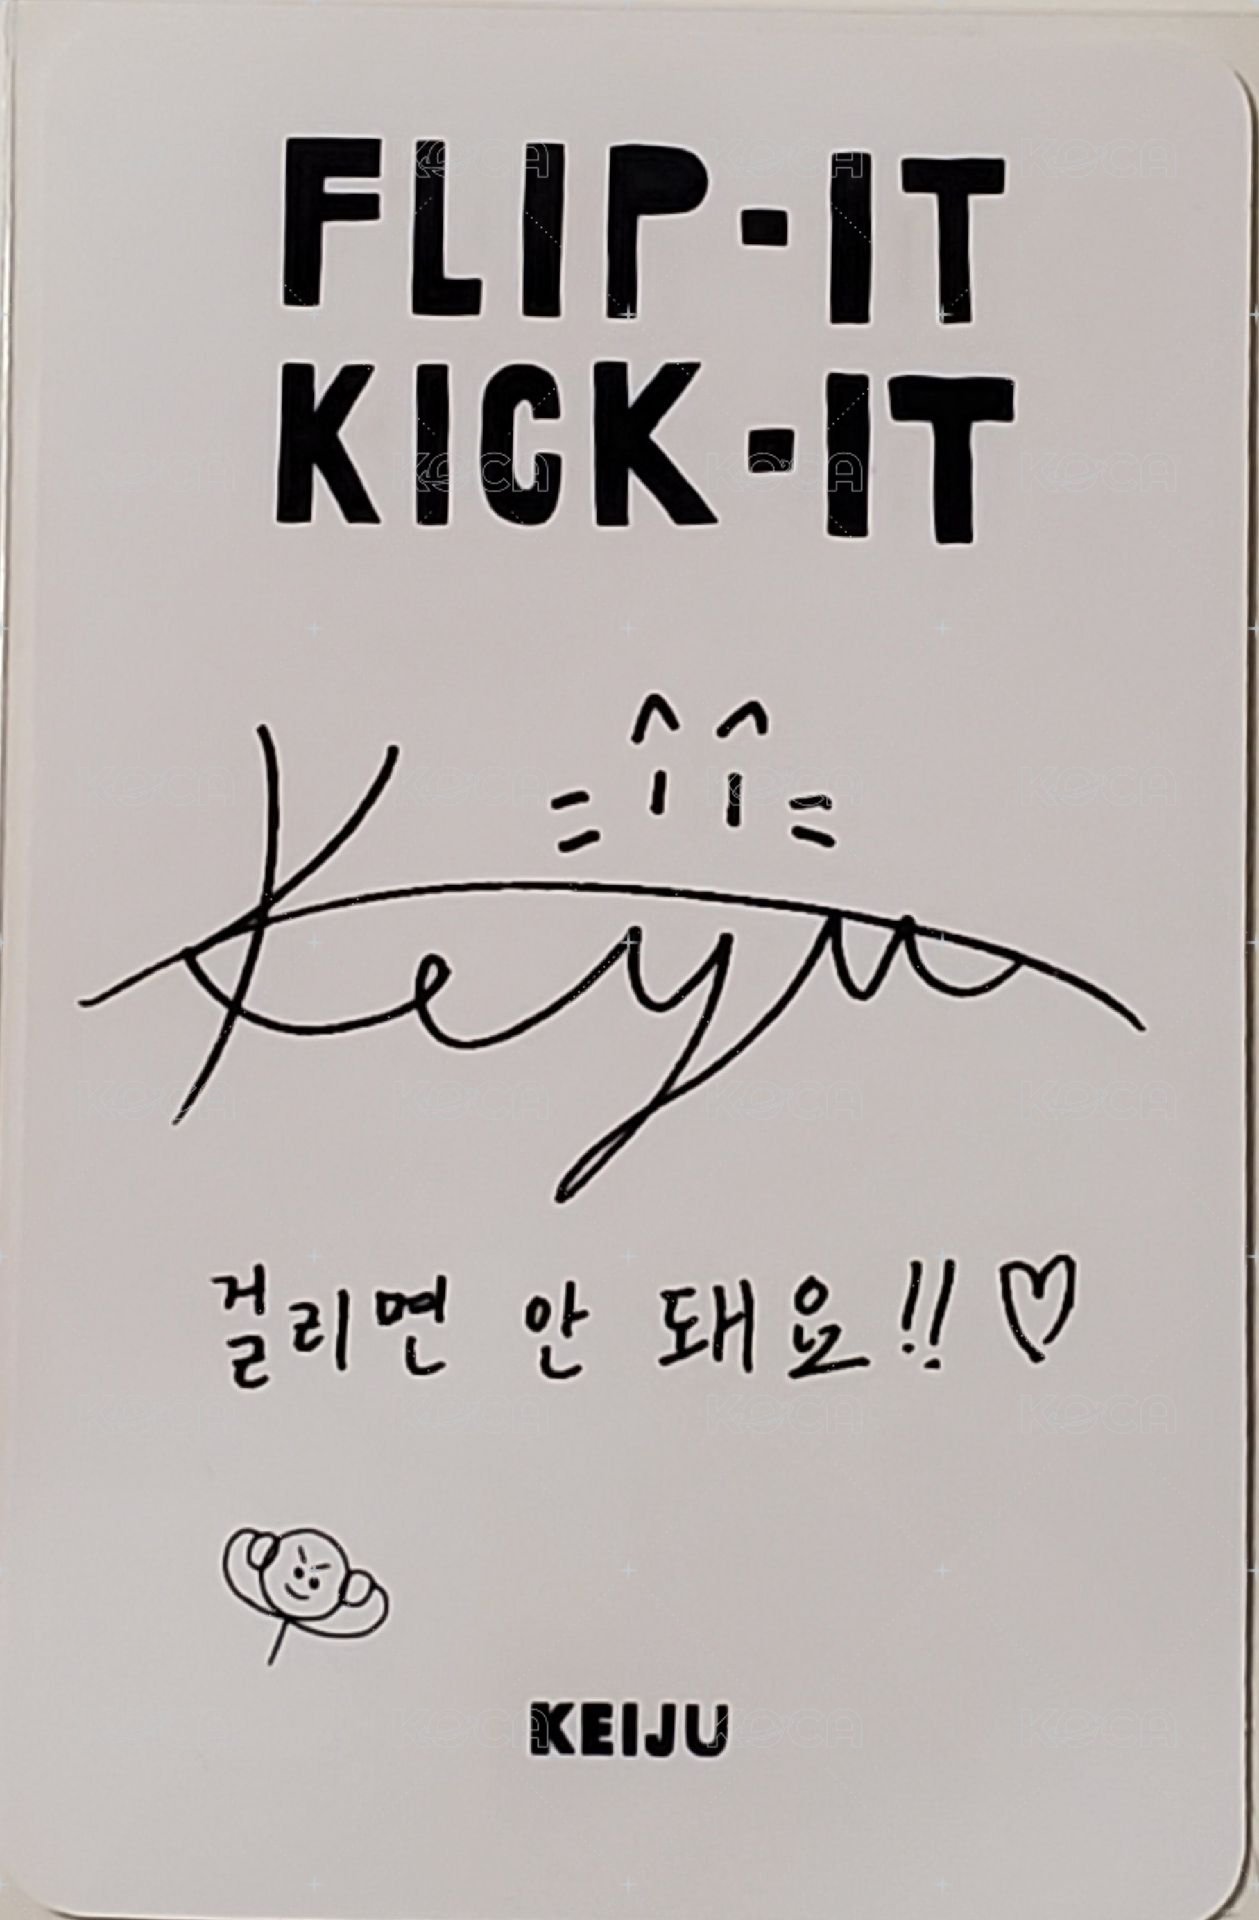 FLIP-IT
KICK-IT
Keiju
걸리면 안 돼요!! ♡
KEIJU
KOCA